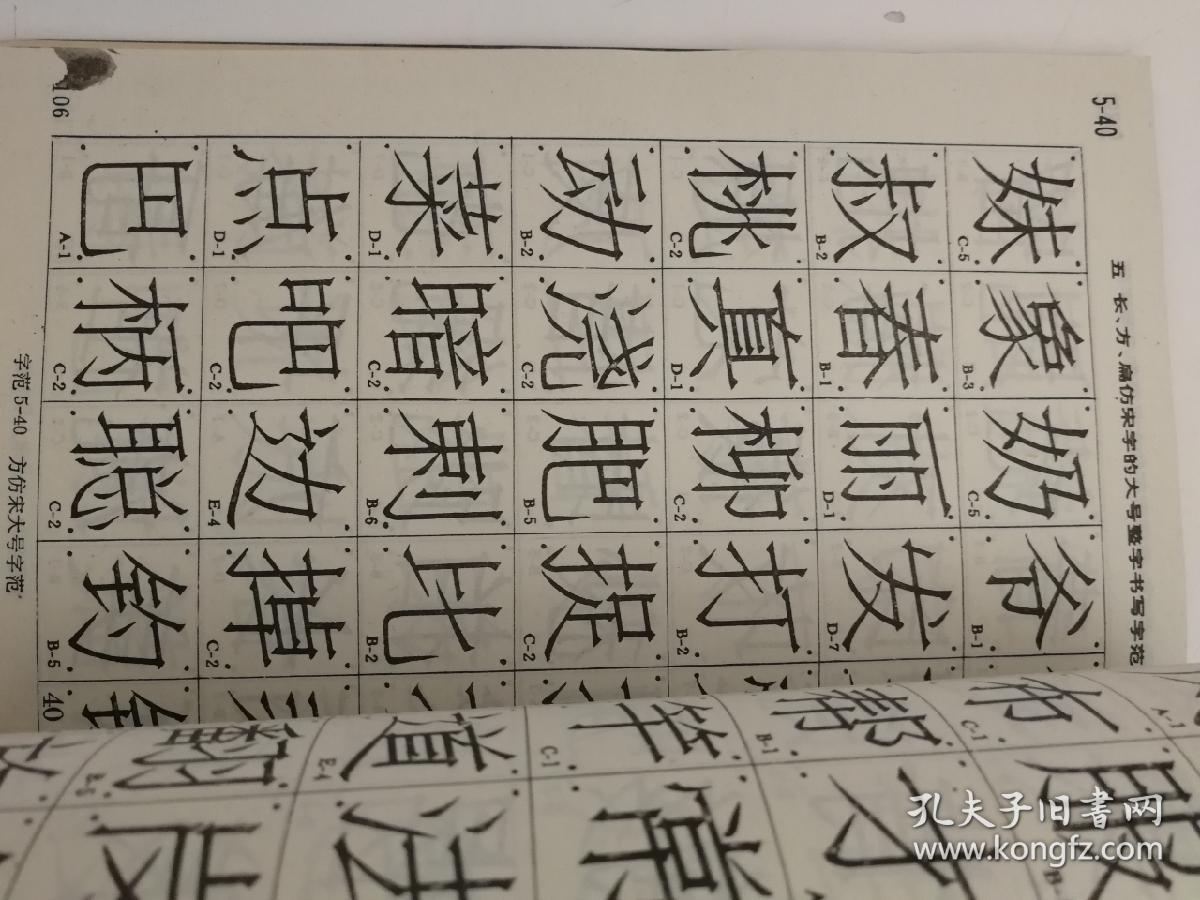 5-40
五 长、方、扁仿宋字的大号整字书写字范
妹 象 奶 爷
C-5 B-3 C-5 B-1
叔 春 丽 发
B-2 B-1 D-1 D-7
桃 真 柳 打
C-2 D-1 C-2 B-2
动 浇 肥 捉
B-2 C-2 B-5 C-2
菜 暗 刺 比
D-1 C-2 B-6 B-2
点 吧 边 掉
D-1 C-2 E-4 C-2
巴 柄 聪 钓
A-1 C-2 C-2 B-5
106
字范5-40 方仿宋大号字范
40
布 帮 道 翻
C-1 B-1 C-1 E-4
才 常 法
孔夫子旧书网
www.kongfz.com